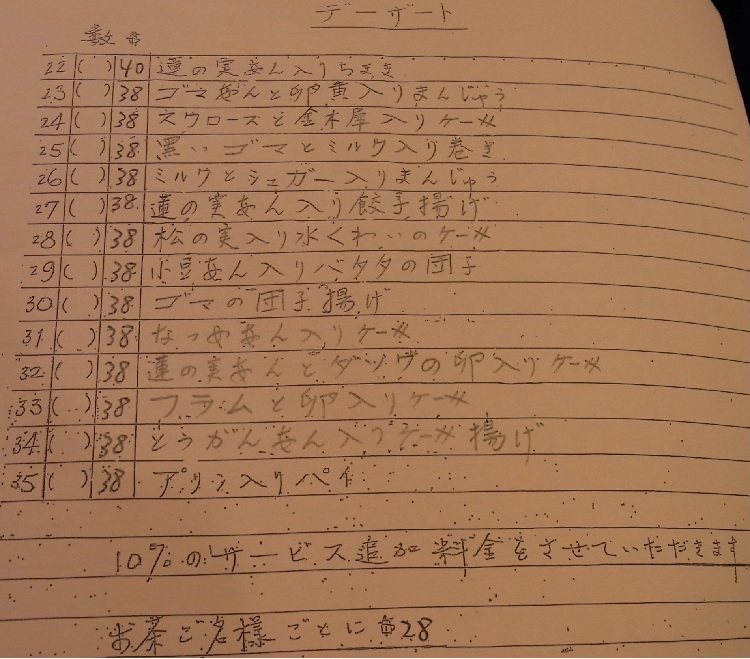 デーザート
数 $
22 ( ) 40 蓮の実あん入りちまき
23 ( ) 38 ゴマあんと卵黄入りまんじゅう
24 ( ) 38 スワローズと金木犀入りケーメ
25 ( ) 38 黒いゴマとミルワ入り巻き
26 ( ) 38 ミルワとシュガー入りまんじゅう
27 ( ) 38 蓮の実あん入り餃子揚げ
28 ( ) 38 松の実入り水くわいのケーメ
29 ( ) 38 小豆あん入りバタタの団子
30 ( ) 38 ゴマの団子揚げ
31 ( ) 38 なつめあん入りケーメ
32 ( ) 38 蓮の実あんとダッヴの卵入りケーメ
33 ( ) 38 フラムと卵入りケーメ
34 ( ) 38 とうがんあん入りケーメ揚げ
35 ( ) 38 アプリン入りパイ
10%のサービス追加料金をさせていただきます
お茶ご名様ごとに $28